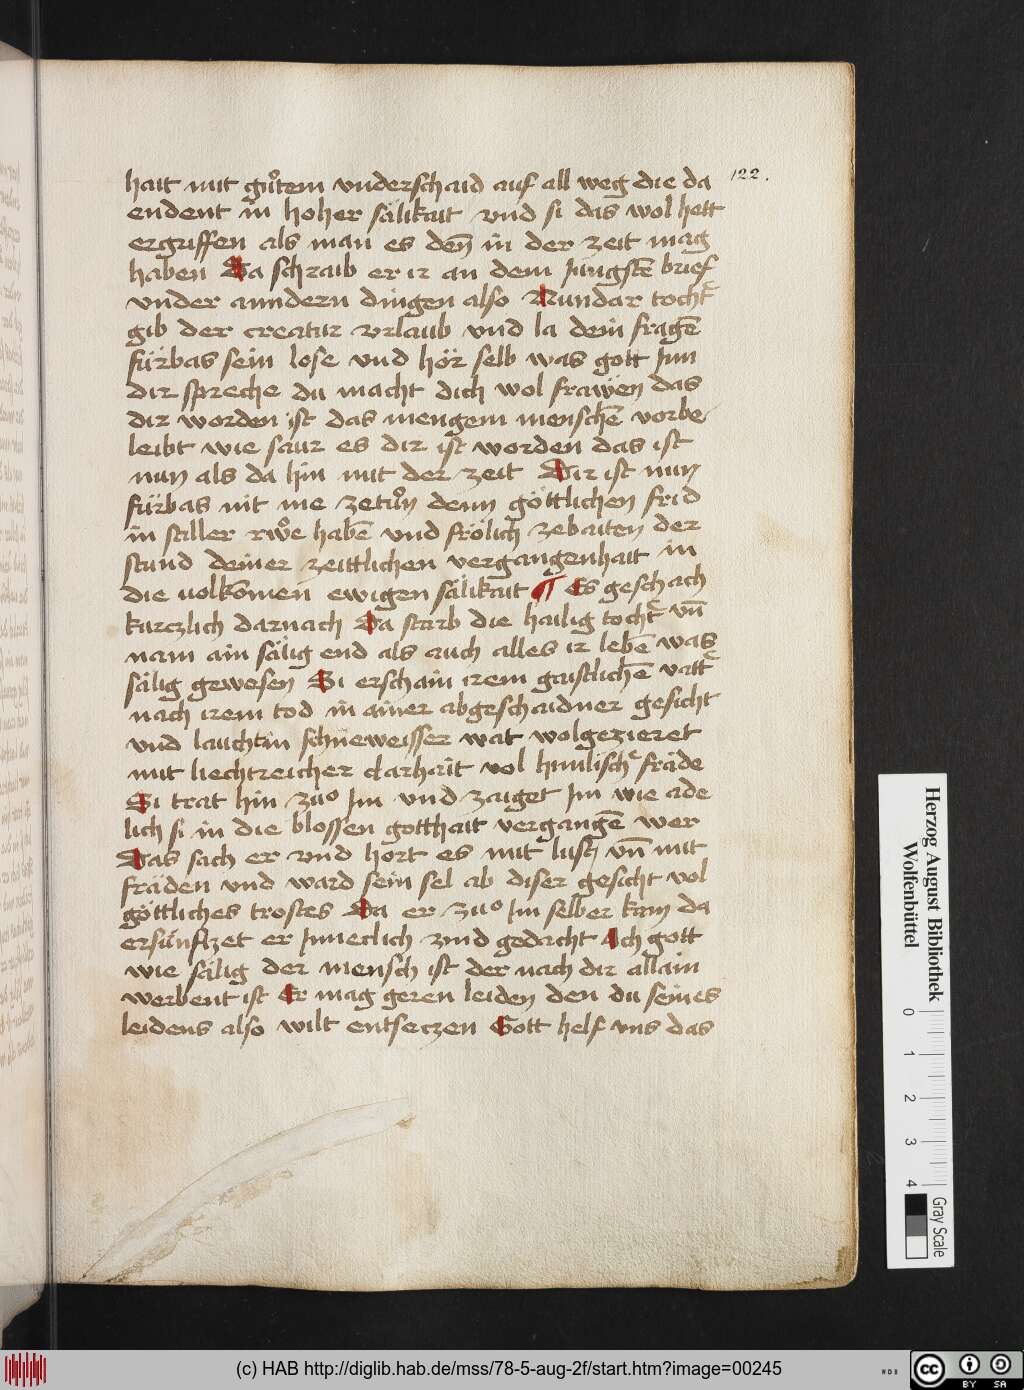 122.
hait mit guͦtem vnderschaid auf all weg die da
endent in hoher sälikait vnd si das wol hett
ergriffen als man es den̄ in der zeit mag
haben Da schraib er ir an dem Jungstē brief
vnder anndern dingen also Nundar tocht̄
gib der creatur vrlaub vnd la dein fragē
fürbas sein lose vnd hör selb was gott Jnn
dir spreche du macht dich wol frawen das
dir worden ist das mengem menschē vorbe
leibt wie saur es dir ist worden das ist
nun als da hin mit der zeit Dir ist nun
fürbas nit me zetuͦn denn göttlichen frid
in stiller rwͦe habē vnd frölich zebaiten der
stund deiner zeittlichen vergangenhait in
die uolkōmen ewigen sälikait ¶ Es geschach
kurczlich darnach Da starb die hailig tocht̄ vn̄
nam ain sälig end als auch alles ir lebē was
sälig gewesen Si erschain irem gaistlichē vatt̄
nach irem tod in ainer abgeschaidner gesicht
vnd lauchtin schneweisser wat wolgezieret
mit liechtreicher clarhait vol himlisch̄ fräde
Si trat hin zuͦ Jm vnd zaiget Jm wie ade
lich si in die blossen gotthait vergangē wer
Das sach er vnd hort es mit lust vn̄ mit
fräden vnd ward sein sel ab diser gesicht vol
göttliches trostes Da er zuͦ Jm selber kam da
ersünftzet er Jnnerlich vnd gedacht Ach gott
wie sälig der mensch ist der nach dir allain
werbent ist Er mag geren leiden den du seines
leidens also wilt entseczen Gott helf vns das
Herzog August Bibliothek
Wolfenbüttel
0 1 2 3 4
Gray Scale
(c) HAB http://diglib.hab.de/mss/78-5-aug-2f/start.htm?image=00245
WDB
cc BY SA